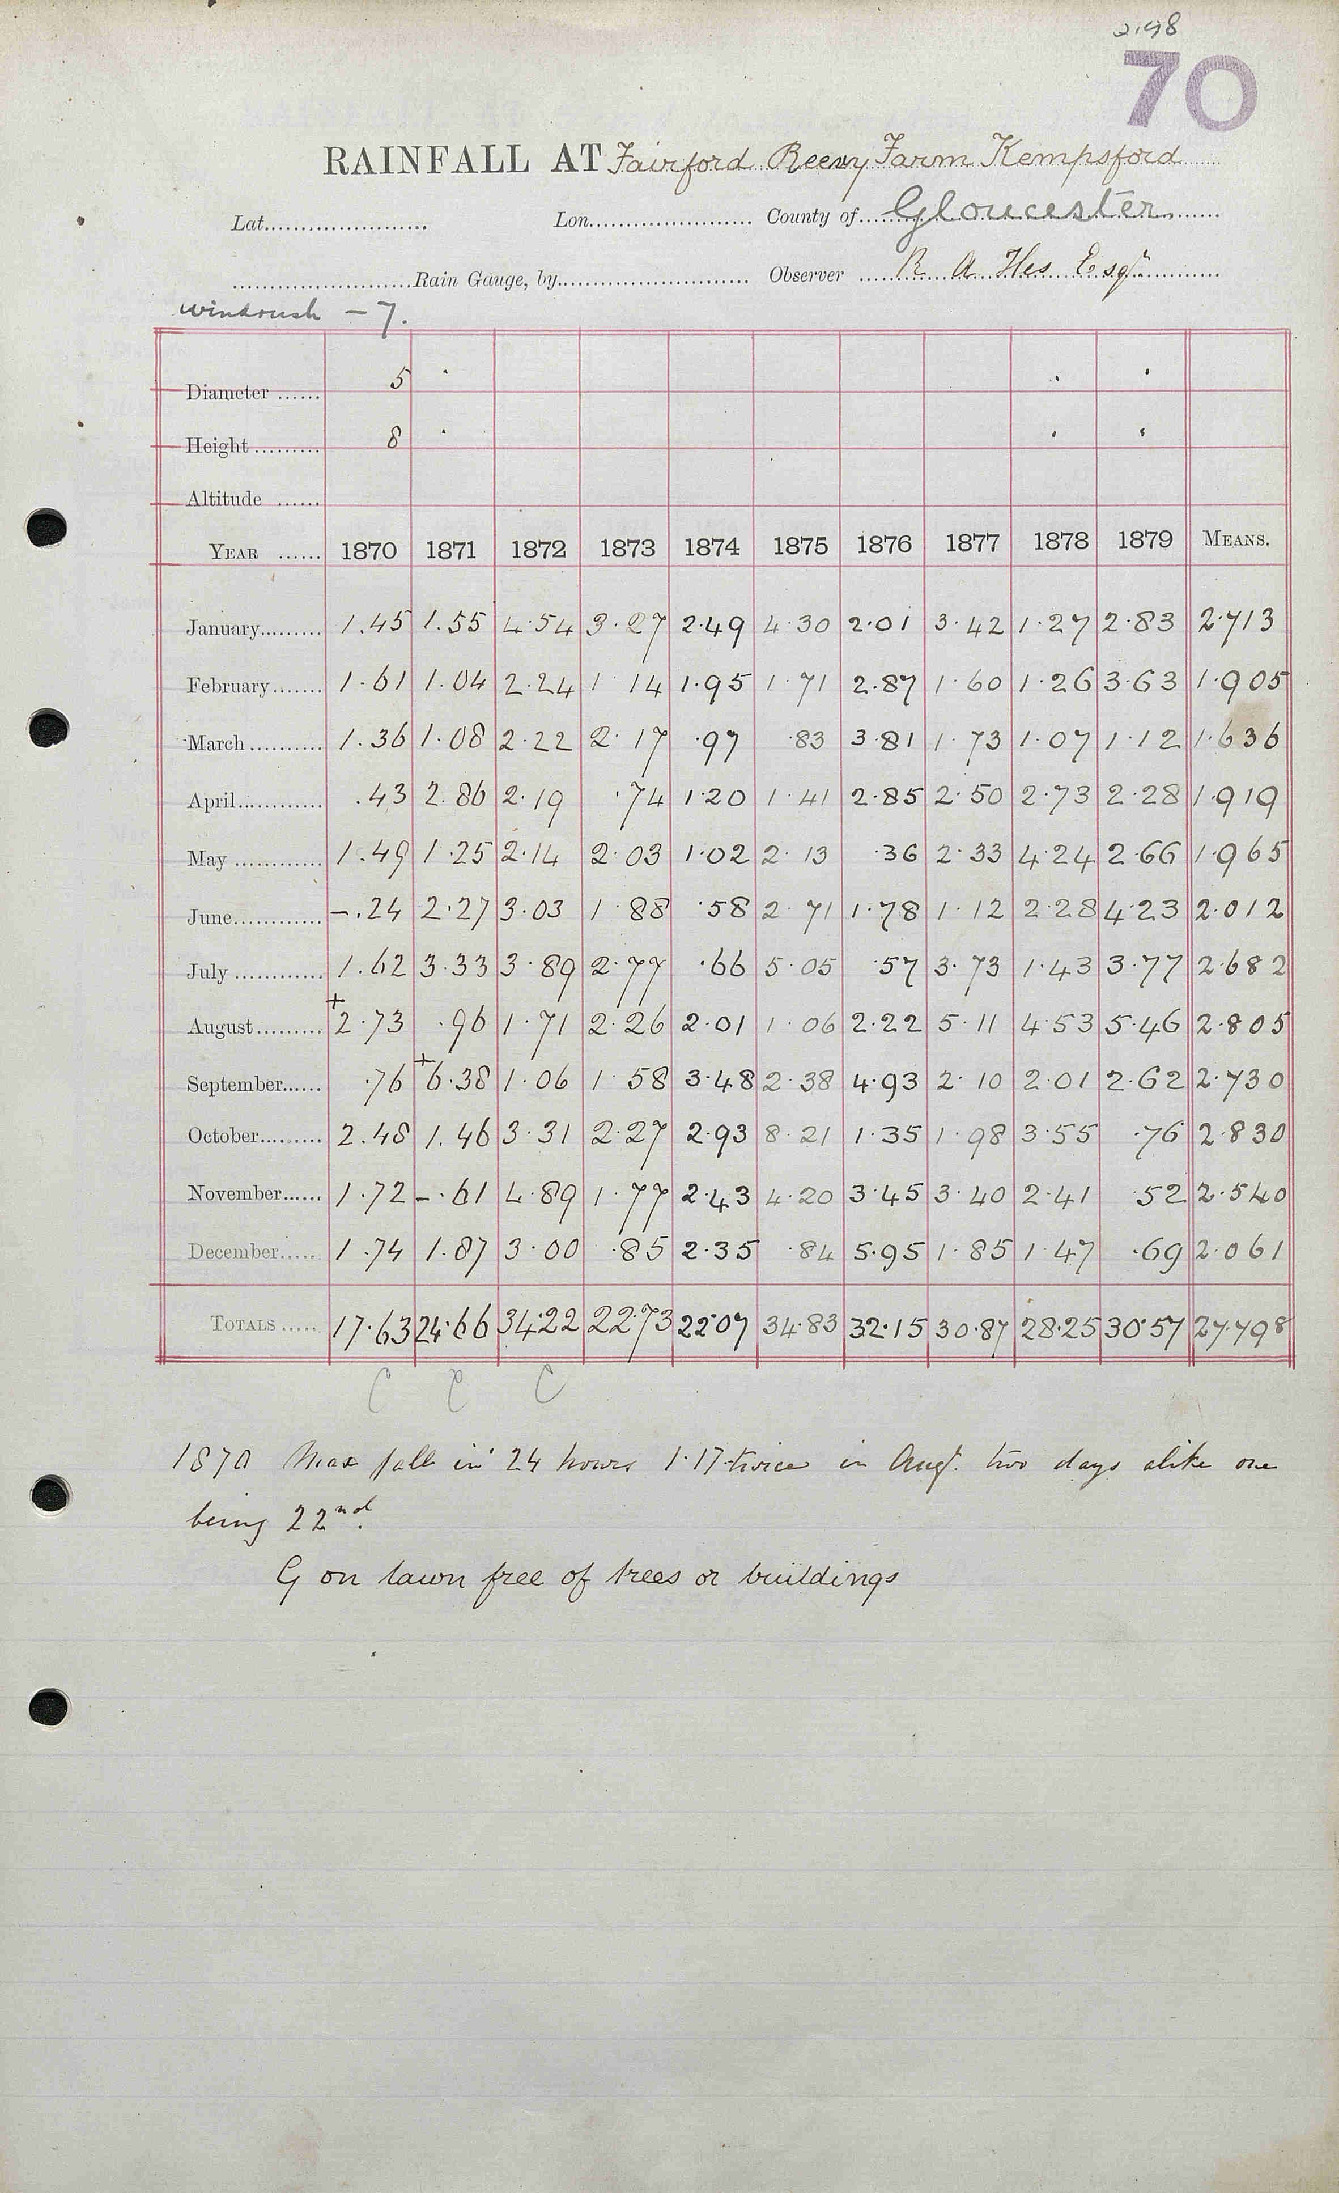 2198
70
RAINFALL AT Fairford Reevy Farm Kempsford
Lat. Lon. County of Gloucester
Rain Gauge, by Observer R A Iles Esqr
Windrush – 7.
Diameter 5
Height 8
Altitude
YEAR 1870 1871 1872 1873 1874 1875 1876 1877 1878 1879 MEANS.
January 1.45 1.55 4.54 3.27 2.49 4.30 2.01 3.42 1.27 2.83 2.713
February 1.61 1.04 2.24 1.14 1.95 1.71 2.87 1.60 1.26 3.63 1.905
March 1.36 1.08 2.22 2.17 .97 .83 3.81 1.73 1.07 1.12 1.636
April .43 2.86 2.19 .74 1.20 1.41 2.85 2.50 2.73 2.28 1.919
May 1.49 1.25 2.14 2.03 1.02 2.13 .36 2.33 4.24 2.66 1.965
June –.24 2.27 3.03 1.88 .58 2.71 1.78 1.12 2.28 4.23 2.012
July 1.62 3.33 3.89 2.77 .66 5.05 .57 3.73 1.43 3.77 2.682
August +2.73 .96 1.71 2.26 2.01 1.06 2.22 5.11 4.53 5.46 2.805
September .76 +6.38 1.06 1.58 3.48 2.38 4.93 2.10 2.01 2.62 2.730
October 2.48 1.46 3.31 2.27 2.93 8.21 1.35 1.98 3.55 .76 2.830
November 1.72 –.61 4.89 1.77 2.43 4.20 3.45 3.40 2.41 .52 2.540
December 1.74 1.87 3.00 .85 2.35 .84 5.95 1.85 1.47 .69 2.061
TOTALS 17.63 24.66 34.22 22.73 22.07 34.83 32.15 30.87 28.25 30.57 27.798
C C C
1870 Max fall in 24 hours 1.17 twice in Augt. two days alike one
being 22nd.
G on lawn free of trees or buildings